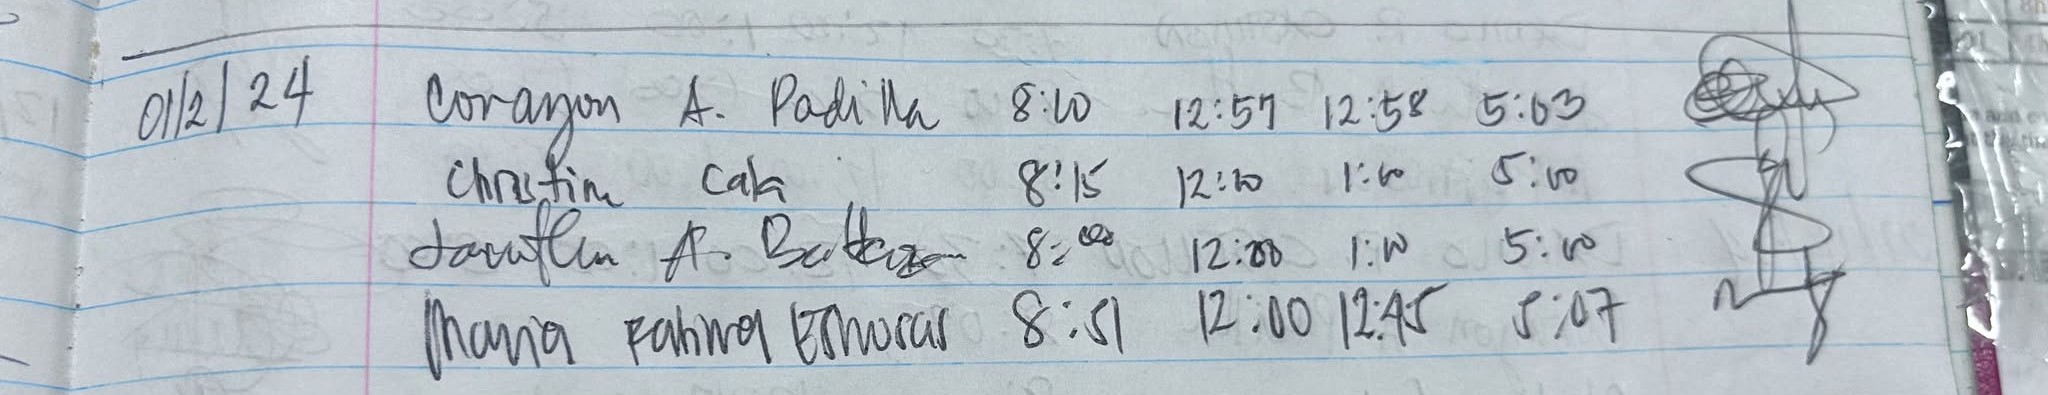 01/2/24 Corazon A. Padilla 8:00 12:57 12:58 5:03
Christine 8:15 12:00 1:00 5:00
A. 8:00 12:00 1:00 5:00
Maria Fatima 8:51 12:00 12:45 5:07